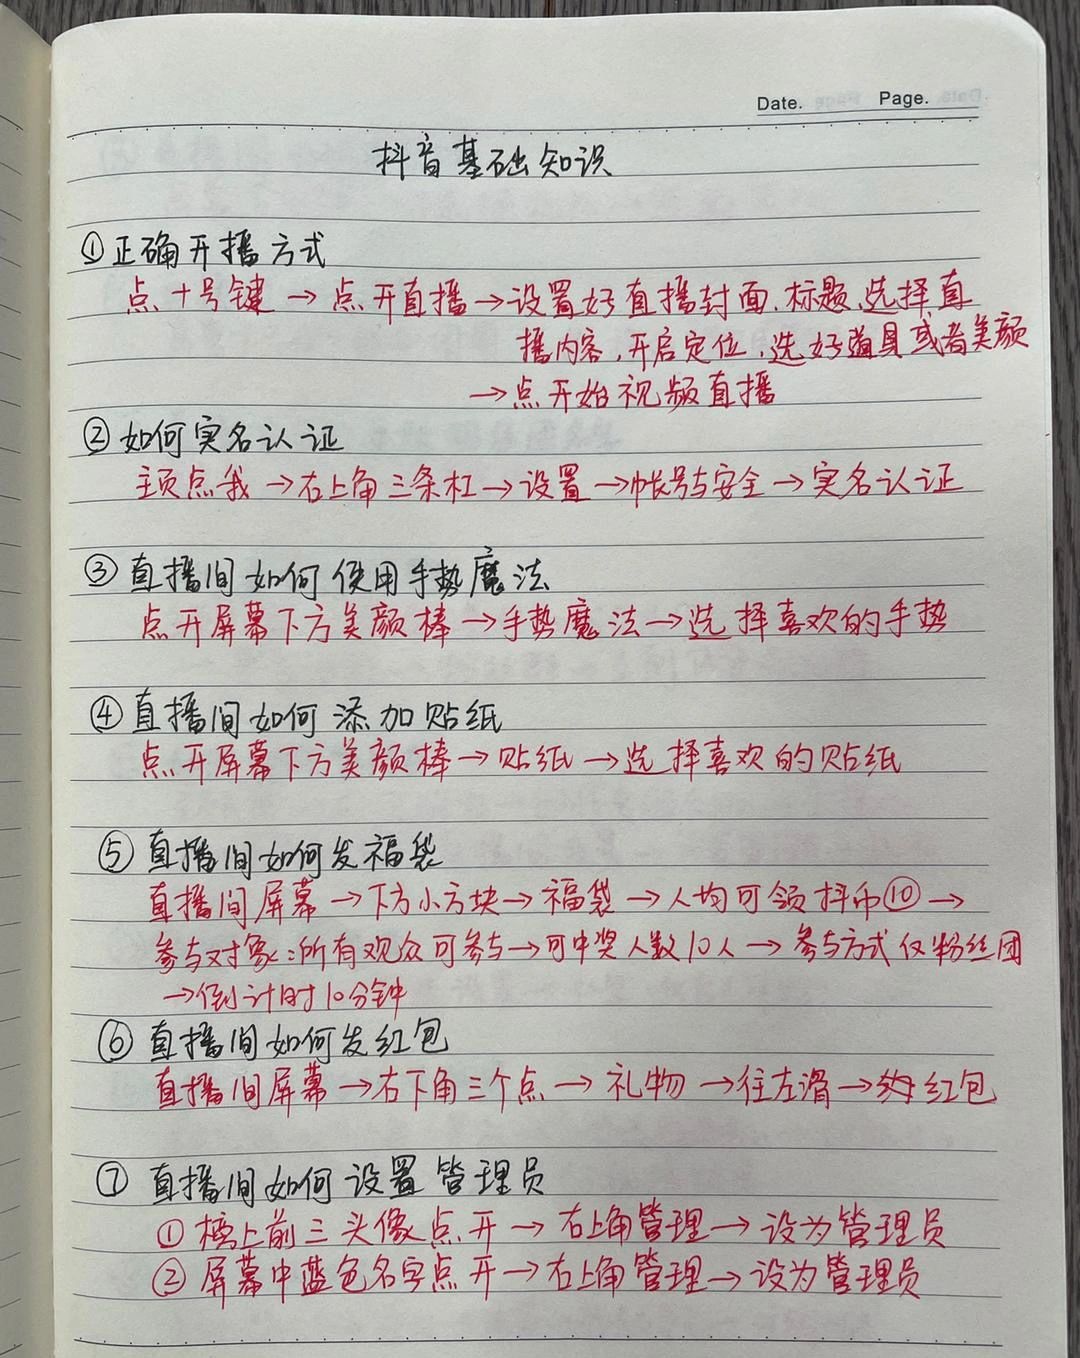 Date. Page.
抖音基础知识
①正确开播方式
点十号键→点开直播→设置好直播封面、标题、选择直
播内容,开启定位,选好道具或者美颜
→点开始视频直播
②如何实名认证
主页点我→右上角三条杠→设置→帐号与安全→实名认证
③直播间如何使用手势魔法
点开屏幕下方美颜棒→手势魔法→选择喜欢的手势
④直播间如何添加贴纸
点开屏幕下方美颜棒→贴纸→选择喜欢的贴纸
⑤直播间如何发福袋
直播间屏幕→下方小方块→福袋→人均可领抖币⑩→
参与对象:所有观众可参与→可中奖人数10人→参与方式仅粉丝团
→倒计时10分钟
⑥直播间如何发红包
直播间屏幕→右下角三个点→礼物→往左滑→红包
⑦直播间如何设置管理员
①榜上前三头像点开→右上角管理→设为管理员
②屏幕中蓝色名字点开→右上角管理→设为管理员